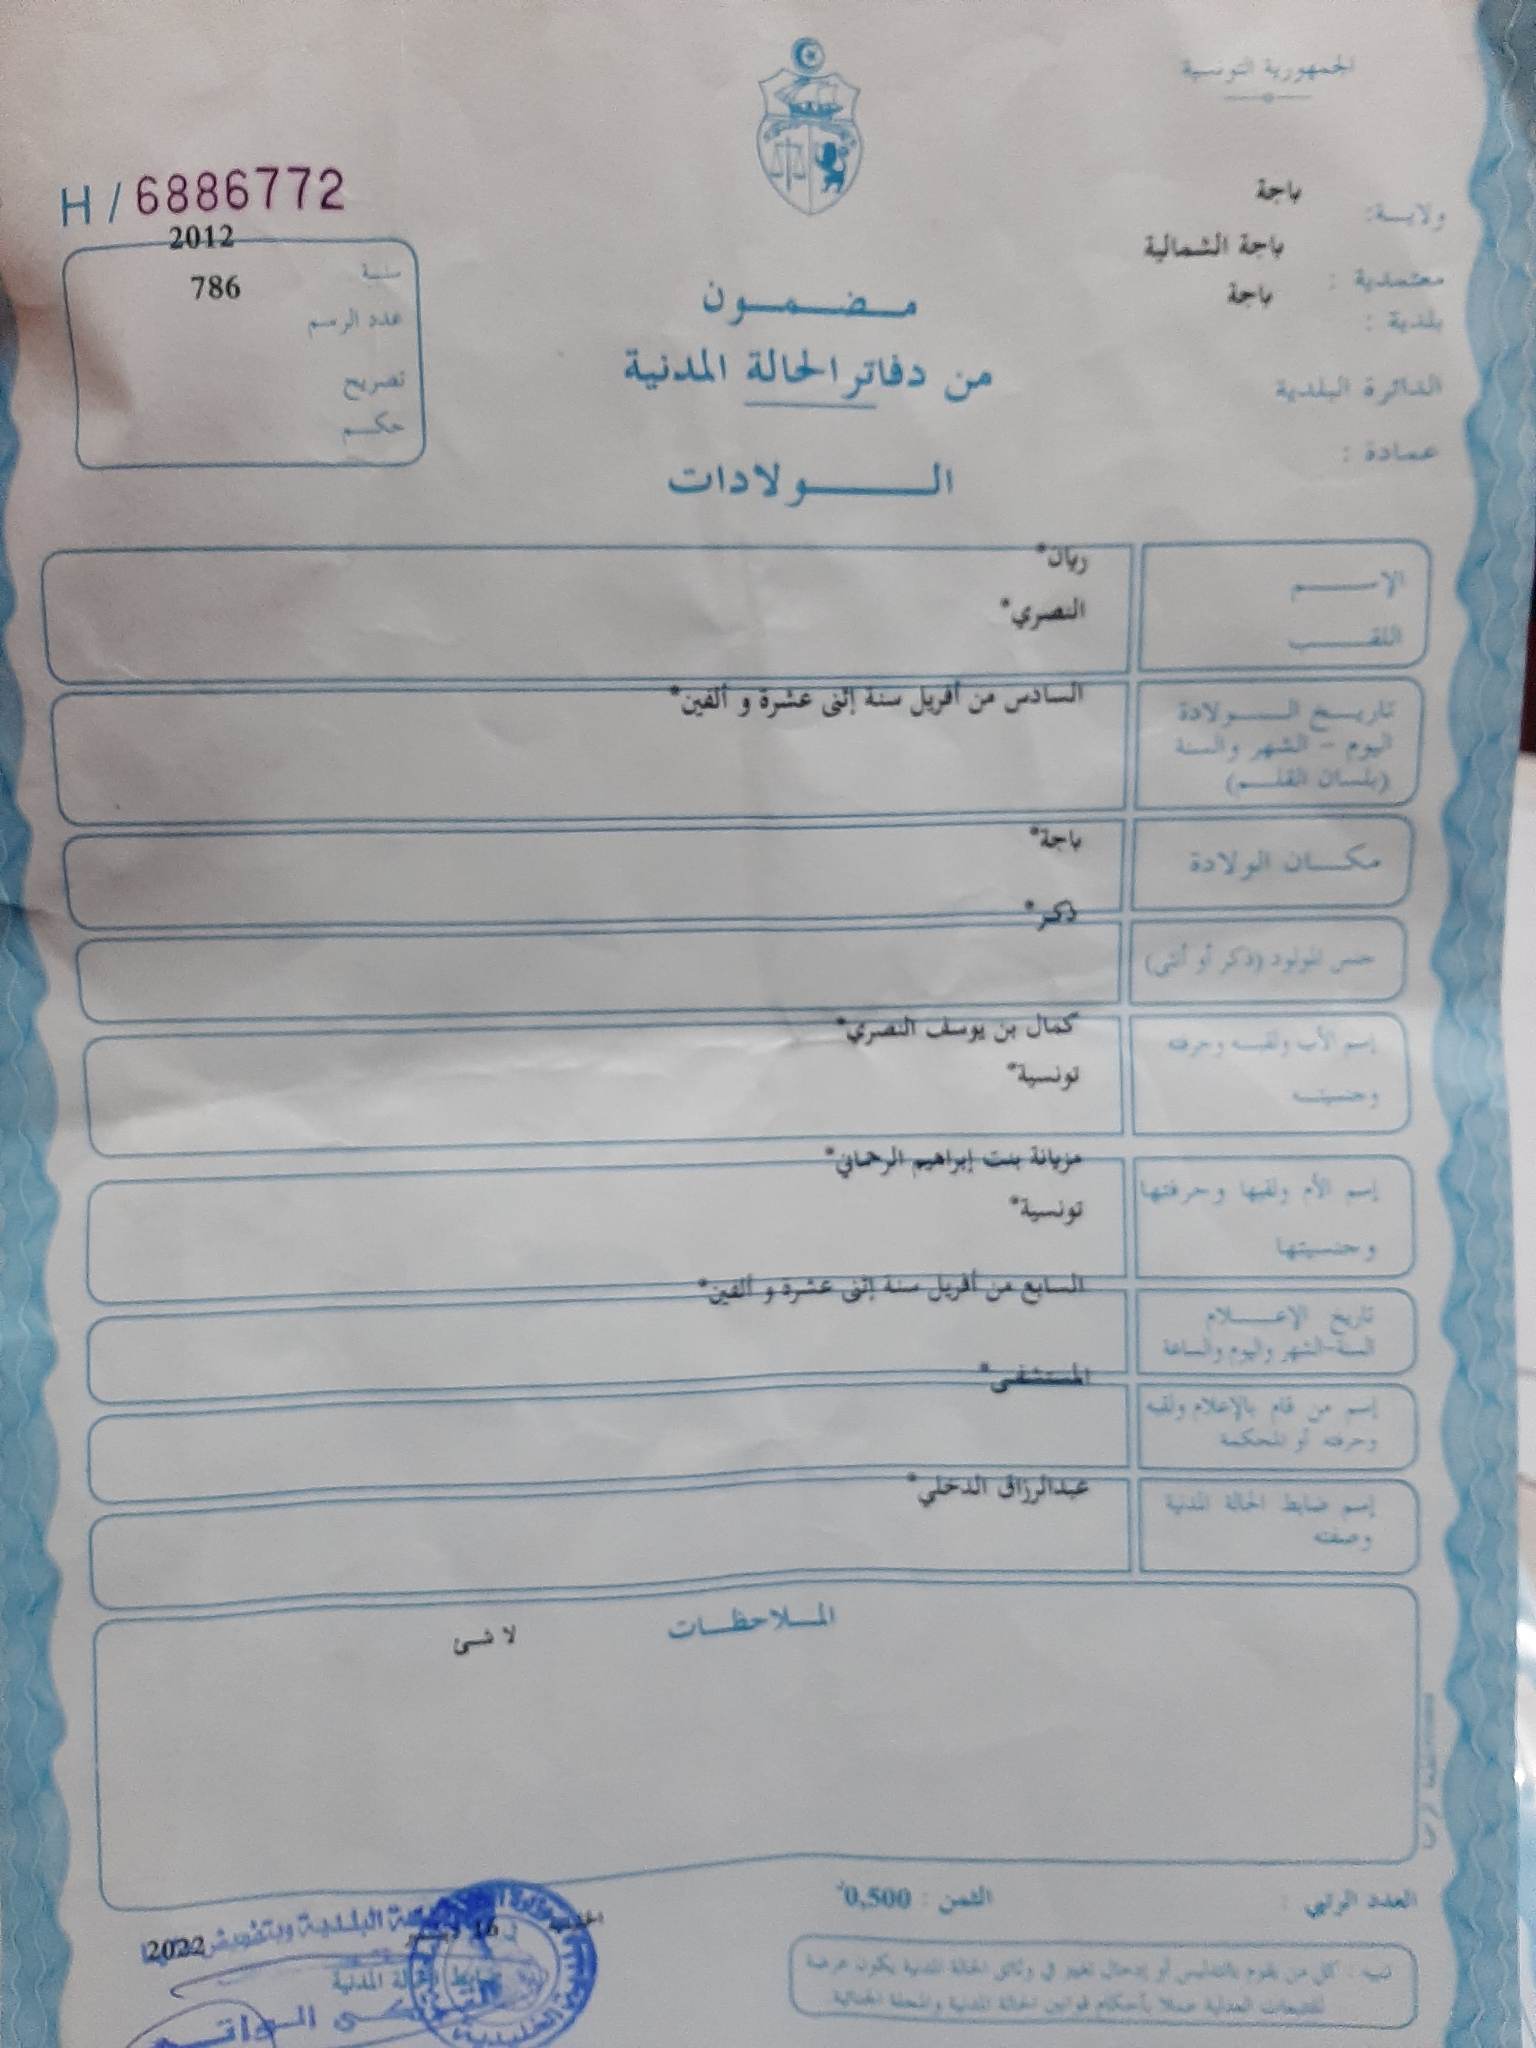 الجمهورية التونسية
H / 6886772
ولايـة: باجة
معتمدية : باجة الشمالية
بلدية : باجة
الدائرة البلدية
عمادة :
سنة 2012
عدد الرسم 786
تصريح
حكـم
مـضـمـون
من دفاتر الحالة المدنية
الـولادات
الإسـم ريان*
اللقـب النصري*
تاريـخ الـولادة
اليوم - الشهر والسنة
(بلسان القلـم)
السادس من أفريل سنة إثنى عشرة و ألفين*
مكـان الولادة باجة*
جنس المولود (ذكر أو أنثى) ذكر*
إسم الأب ولقبـه وحرفته
وجنسيتـه
كمال بن يوسف النصري*
تونسية*
إسم الأم ولقبها وحرفتها
وجنسيتها
مزيانة بنت إبراهيم الرحماني*
تونسية*
تاريخ الإعـلام
السنة-الشهر واليوم والساعة
السابع من أفريل سنة إثنى عشرة و ألفين*
إسم من قام بالإعلام ولقبه
وحرفته أو المحكمة
المستشفى*
إسم ضابط الحالة المدنية
وصفته
عبدالرزاق الدخلي*
الملاحظات
لا شئ
العدد الرتبي :
الثمن : 0,500د
تنبيه : كل من يقوم بالتدليس أو إدخال تغيير في وثائق الحالة المدنية يكون عرضة
للتتبعات العدلية عملا بأحكام قوانين الحالة المدنية والمجلة الجنائية
16
2022
ضابط الحالة المدنية